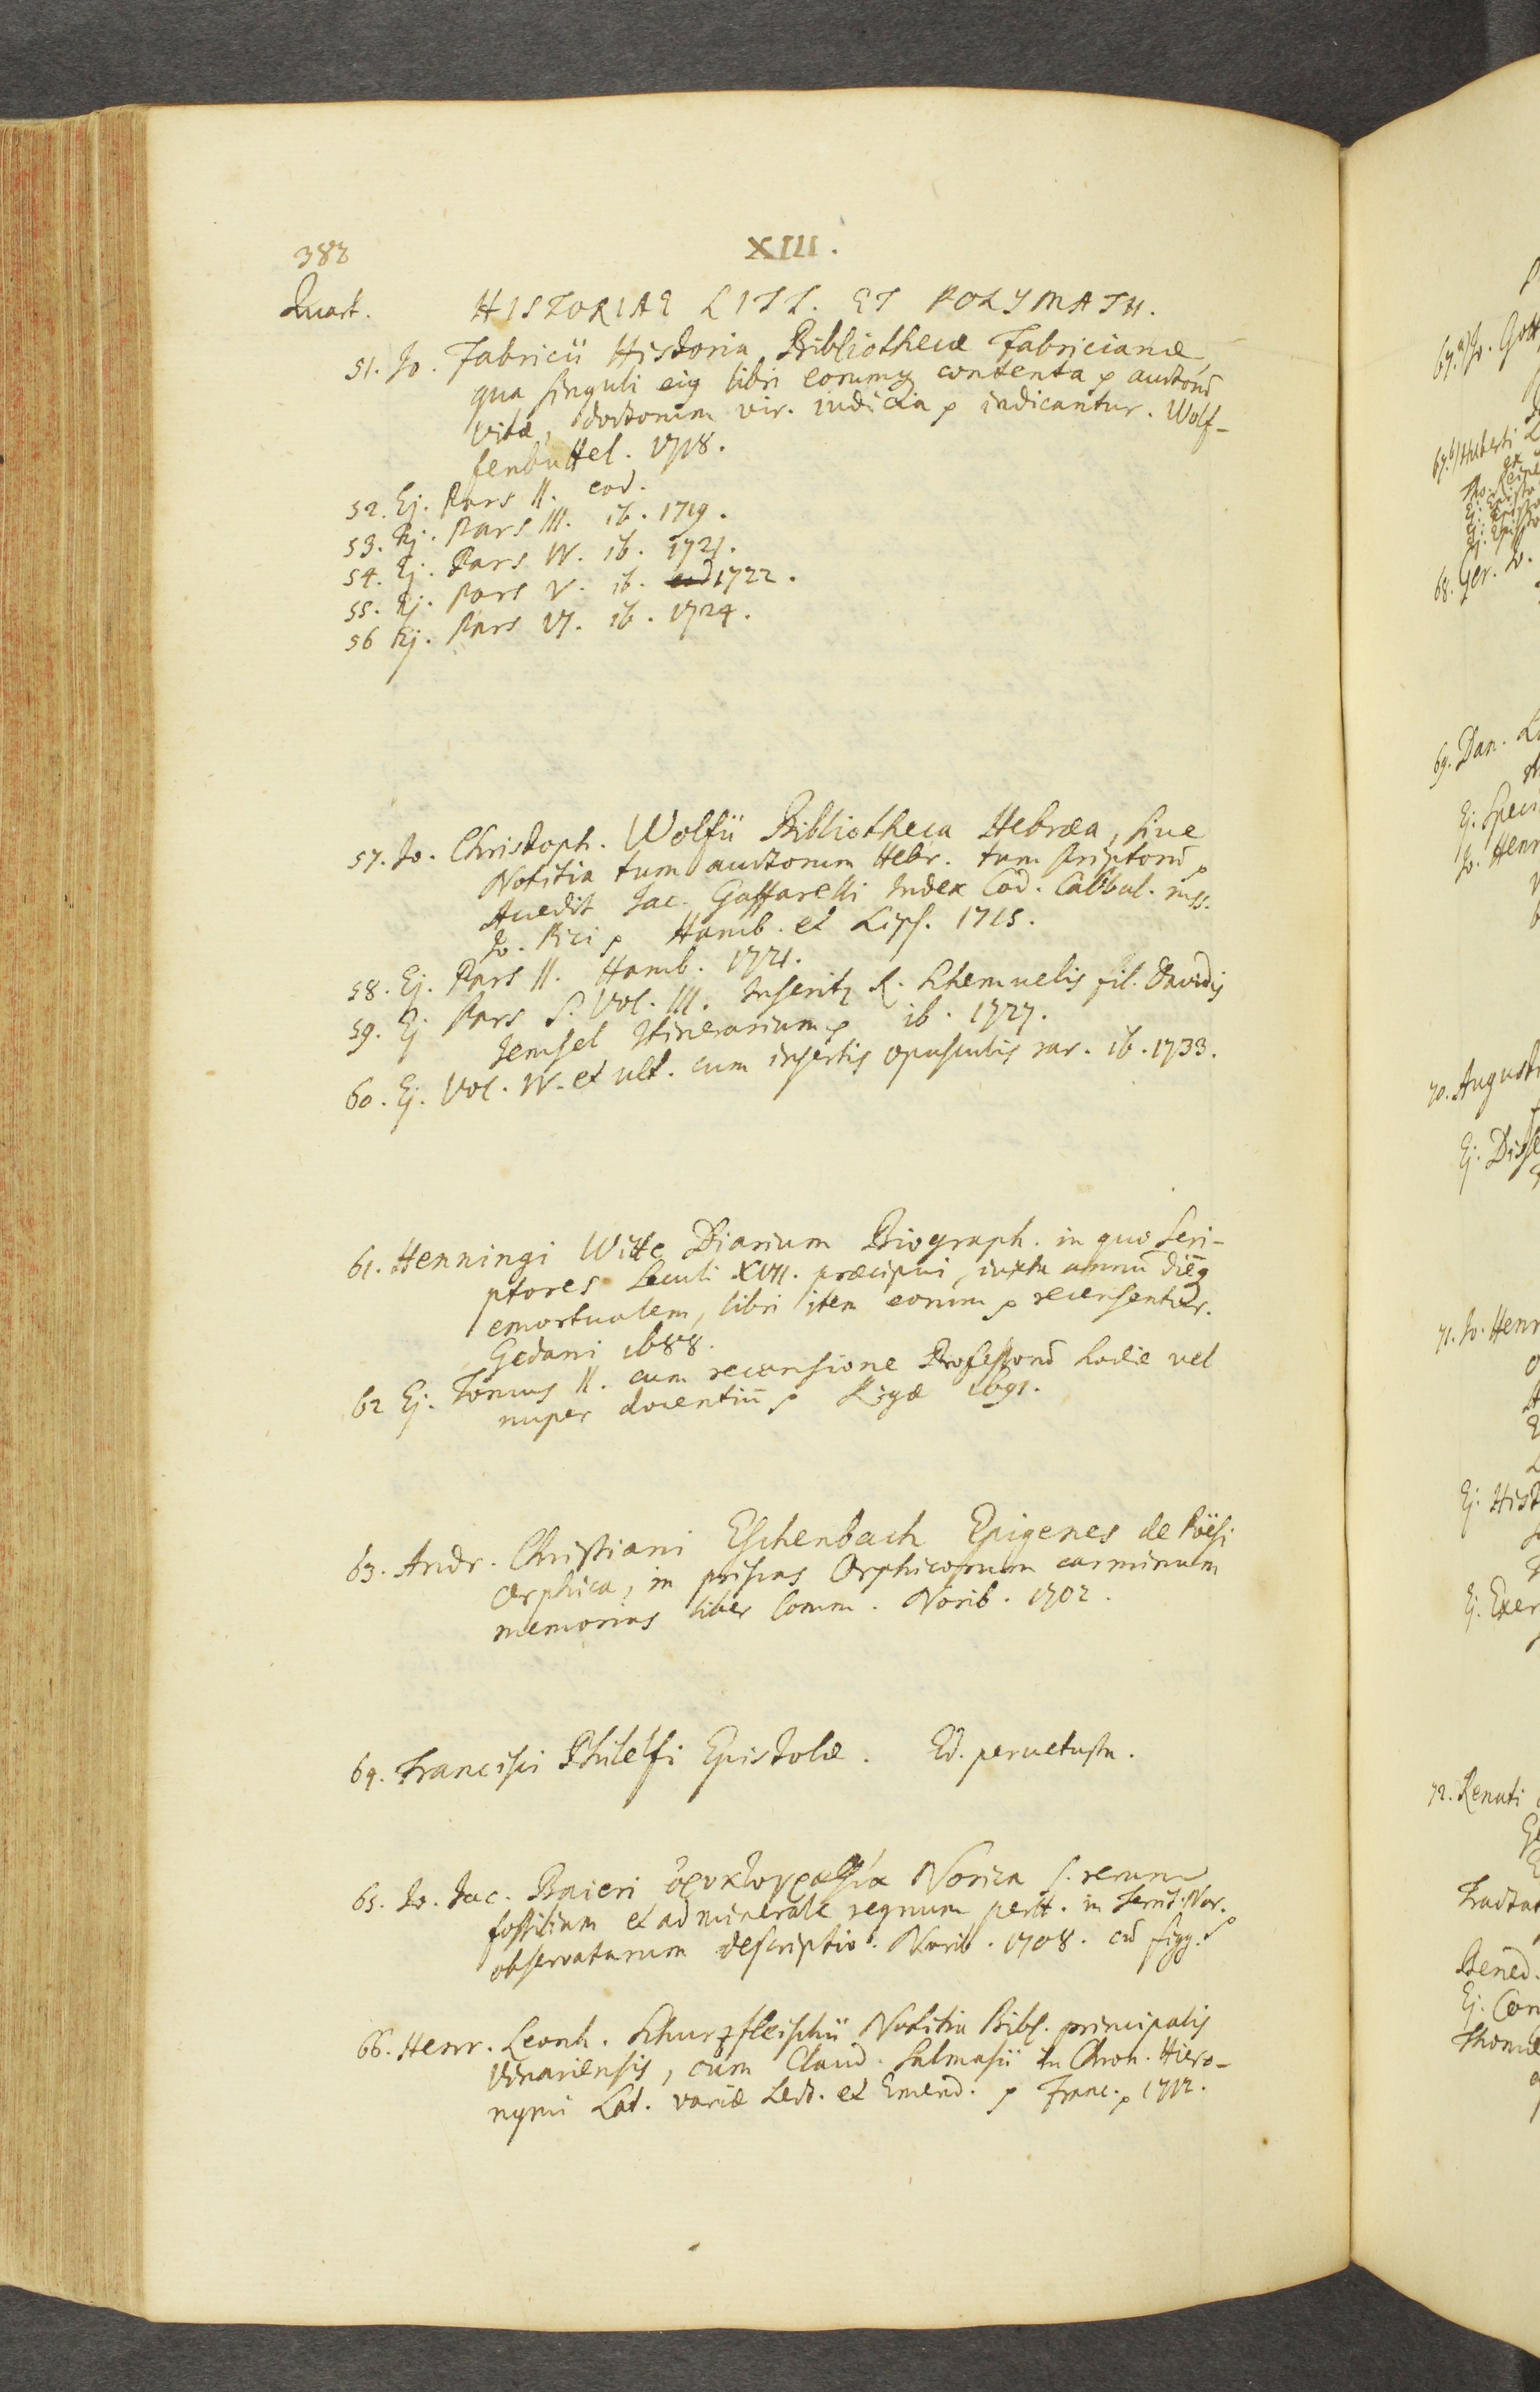 382
XIII.
Quart.
HISTORIAE LITT. ET POLYMATH.
51. Jo. Fabricii Historia Bibliothecæ Fabricianæ
qua singuli eig libri eorumq contenta p auctorū
vitæ, doctorum vir. iudicia p indicantur. Wolf-
fenbuttel. 1718.
52. Ej. Pars II. eod.
53. Ej. Pars III. ib. 1719.
54. Ej. Pars IV. ib. 1721.
55. Ej. Pars V. ib. eod 1722.
56 Ej. Pars VI. ib. 1724.
57. Jo. Christoph. Wolfii Bibliotheca Hebræa, sive
Notitia tum auctorum Hebr. tum scriptorū p
Accedit Jac. Gaffarelli Index Cod. Cabbal. mss.
Jo. Pici p Hamb. et Lips. 1715.
58. Ej. Pars II. Hamb. 1721.
59. Ej Pars s. Vol. III. Inseritz R. Schemuelis fil. Davidis
Jemsel Itinerarium p ib. 1727.
60. Ej. Vol. IV. et ult. cum insertis opusculis rar. ib. 1733.
61. Henningi Witte Diarium Biograph. in quo Scri-
ptores Seculi XVII. præcipui, iuxta annū diēq
emortualem, libri item eorum p recensentur.
Gedani 1688.
62 Ej. Tomus II. cum recensione Professorū hodie vel
nuper docentiū p Rigæ 1691.
63. Andr. Christiani Eschenbach Epigenes de Poësi
Orphica, in priscas Orphicorum carminum
memorias liber Comm. Norib. 1702.
64. Francisci Philelfi Epistolæ. Ed. pervetusta.
65. Jo. Jac. Baieri ὀρυκτογραφία Norica s. rerum
fossilium et ad minerale regnum pertt. in Territ. Nor.
observatarum descriptio. Norib. 1708. cū figg. p
66. Henr. Leonh. Schurzfleischii Notitia Bibl. principalis
Vinariensis, cum Claud. Salmasii in Chron. Hiero-
nymi Lat. variæ Lect. et Emend. p Franc. p 1712.
67.a) Jo. Gott
67.b) Huberti
68. Ger. Jo.
69. Dan.
Ej. Speci
Jo. Henr
70. Augusti
Ej. Disse
71. Jo. Henr
Ej. Hist
Ej. Exer
72. Renati
Tractat
Bened.
Ej. Con
Thomæ